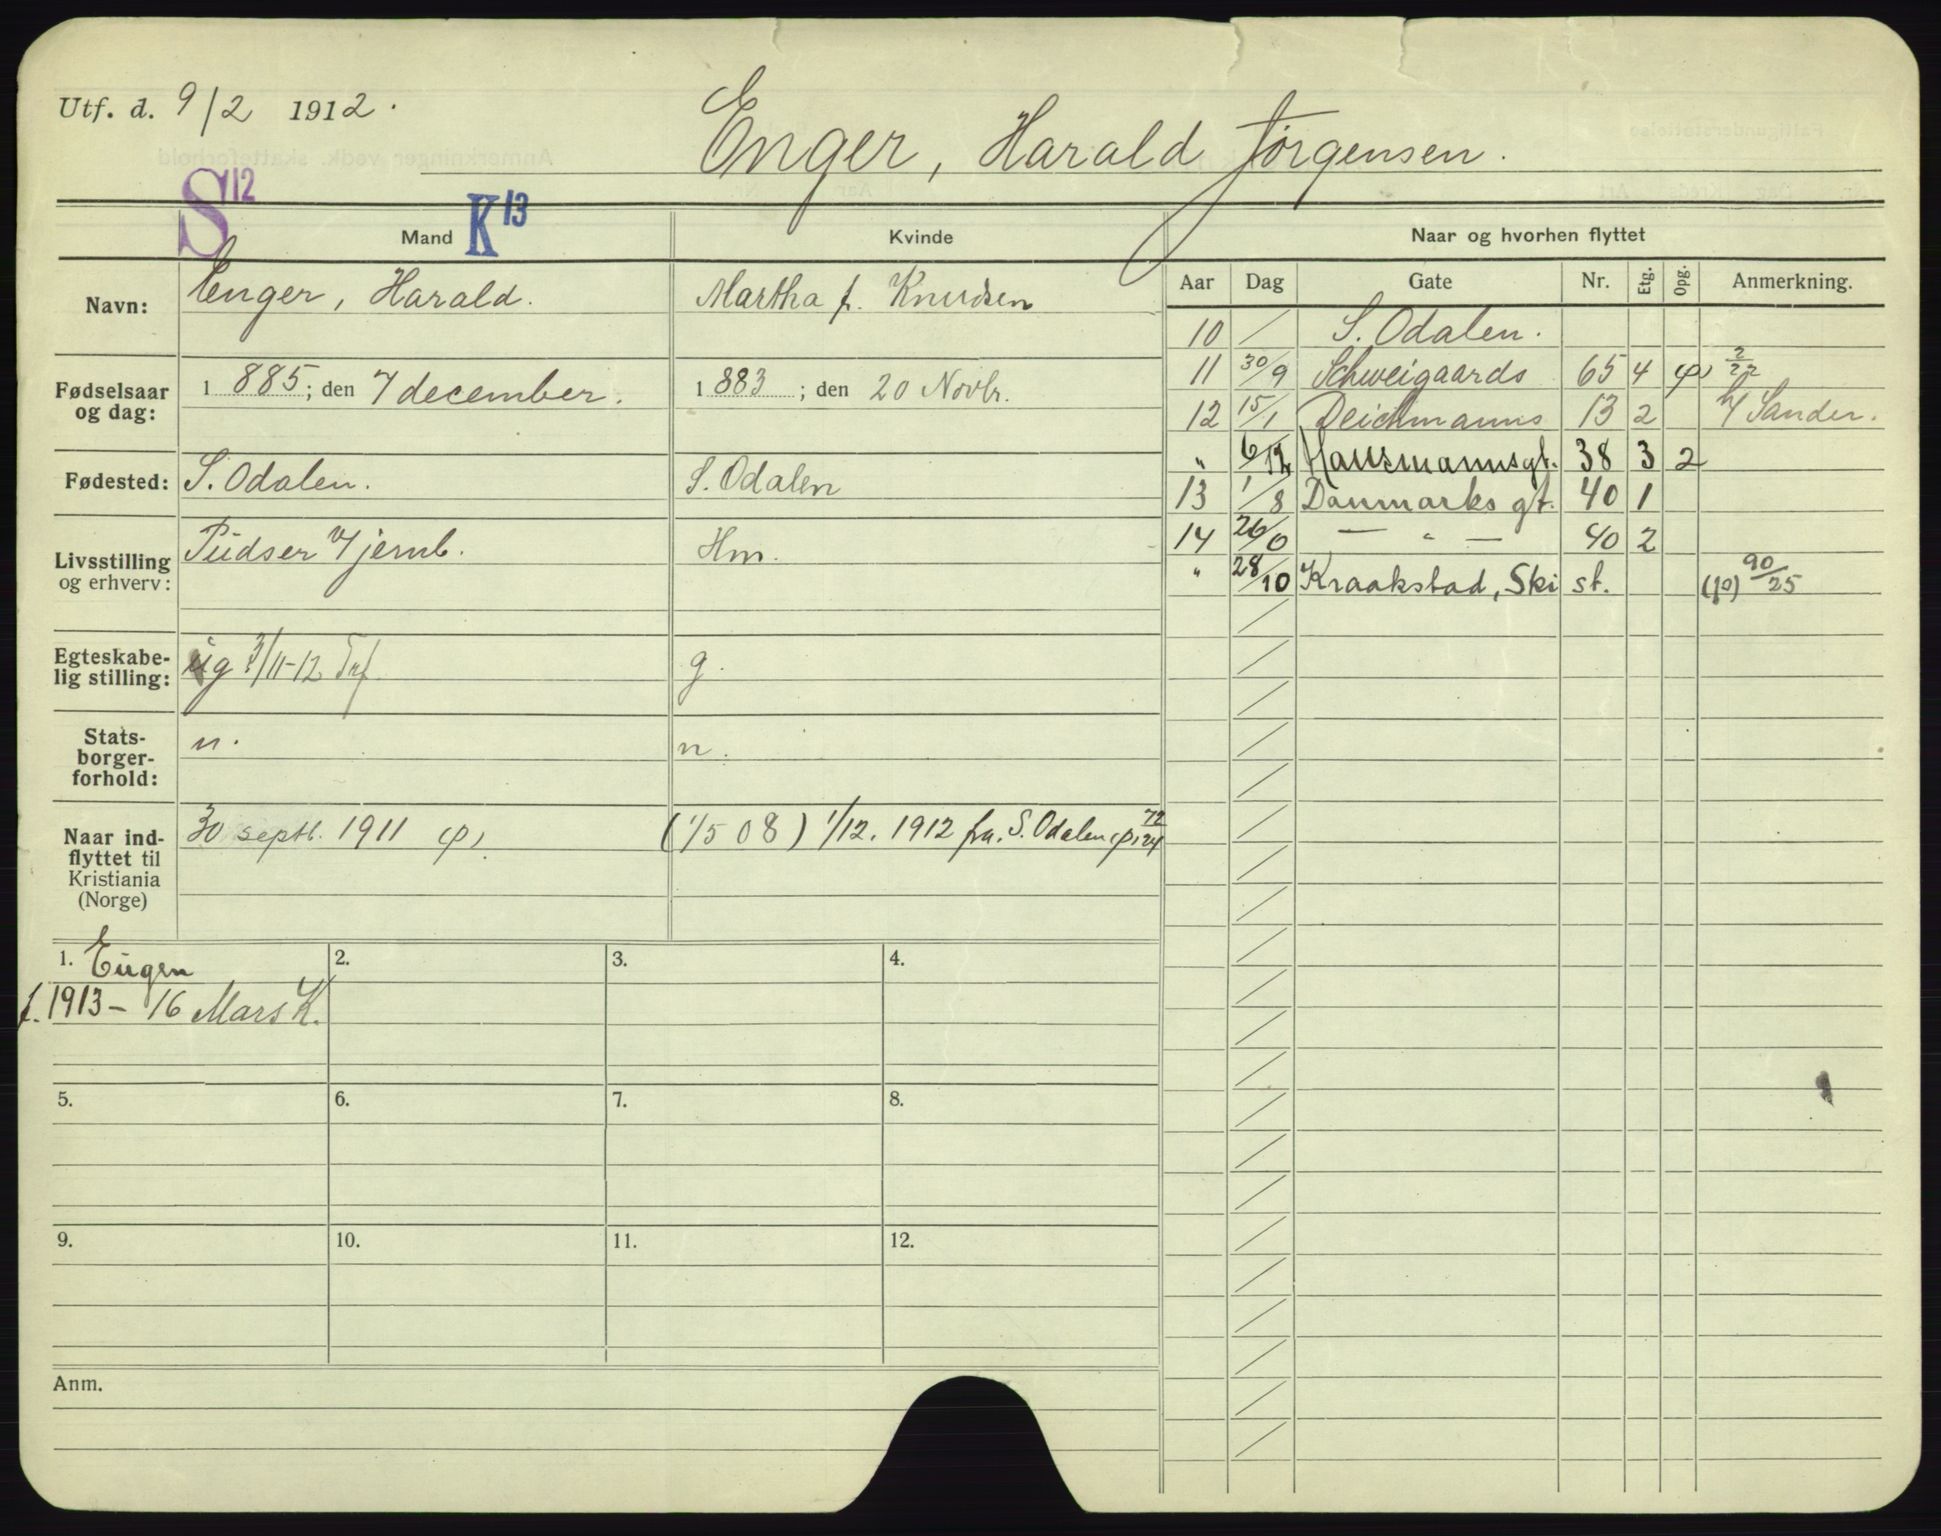 Utf. d. 9/2 1912.
Enger, Harald Jörgensen.
S12
K13
Mand
Kvinde
Naar og hvorhen flyttet
Aar Dag Gate Nr. Etg. Opg. Anmerkning.
Navn: Enger, Harald. Martha f. Knudsen
Fødselsaar og dag: 1885; den 7 december. 1883; den 20 Novbr.
Fødested: S. Odalen. S. Odalen
Livsstilling og erhverv: Pudser v/ jernb. Hm.
Egteskabelig stilling: ug 3/11-12 Trf g.
Statsborgerforhold: n. n.
Naar indflyttet til Kristiania (Norge) 30 septb. 1911 (p) (1/5 08) 1/12. 1912 fra. S. Odalen (p) 72/24
10 / S. Odalen.
11 30/9 Schweigaards 65 4 (p) 2/22
12 15/1 Deichmanns 13 2 v/ Sander.
" 6/12 Hausmannsgt. 38 3 2
13 1/8 Danmarks gt. 40 1
14 — " — 40 2
" 28/10 Kraakstad, Ski st. 90/25
1. Eugen
f. 1913 - 16 Mars K.
2.
3.
4.
5.
6.
7.
8.
9.
10.
11.
12.
Anm.